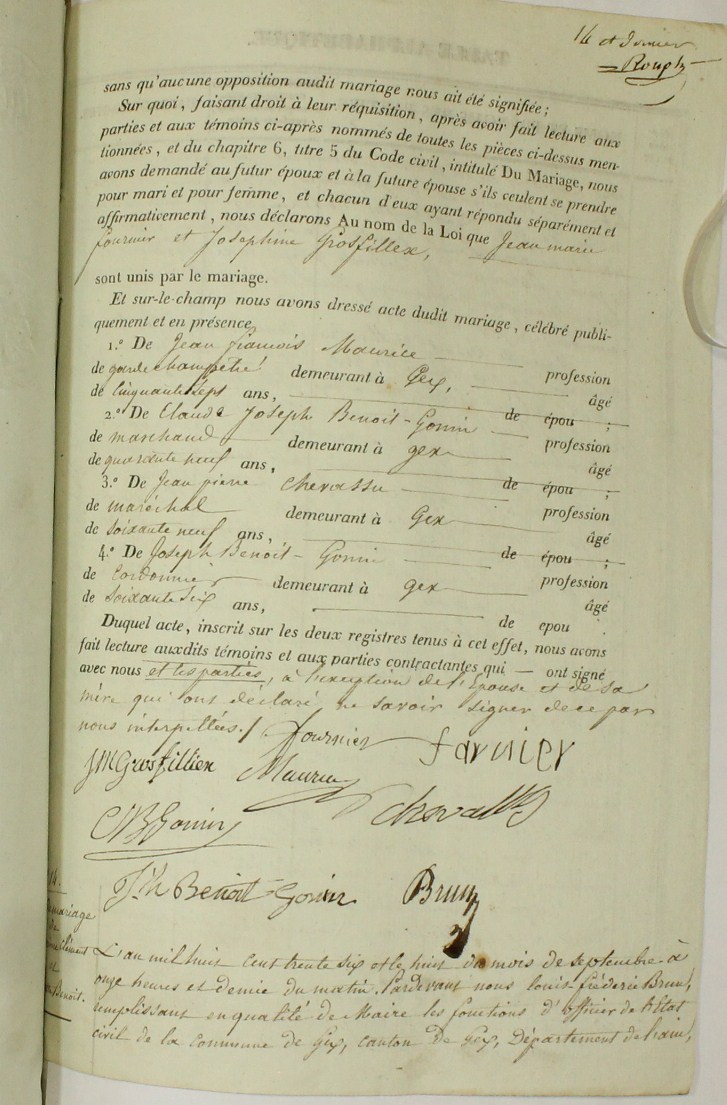 14 et dernier
sans qu'aucune opposition audit mariage nous ait été signifiée ;
Sur quoi, faisant droit à leur réquisition, après avoir fait lecture aux
parties et aux témoins ci-après nommés de toutes les pièces ci-dessus men-
tionnées, et du chapitre 6, titre 5 du Code civil, intitulé Du Mariage, nous
avons demandé au futur époux et à la future épouse s'ils veulent se prendre
pour mari et pour femme, et chacun d'eux ayant répondu séparément et
affirmativement, nous déclarons Au nom de la Loi que Jean marie
fournier et Josephine Grosfillex,
sont unis par le mariage.
Et sur-le-champ nous avons dressé acte dudit mariage, célébré publi-
quement et en présence
1.º De Jean françois Maurice profession
de garde champêtre demeurant à Gex, âgé
de Cinquante sept ans, de épou ;
2.º De Claude Joseph Benoit-Gonin profession
de marchand demeurant à gex âgé
de quarante neuf ans, de épou ;
3.º De Jean pierre Chevassu profession
de maréchal demeurant à Gex âgé
de soixante neuf ans, de épou ;
4.º De Joseph Benoit-Gonin profession
de Cordonnier demeurant à gex âgé
de soixante six ans, de epou
Duquel acte, inscrit sur les deux registres tenus à cet effet, nous avons
fait lecture auxdits témoins et aux parties contractantes qui — ont signé
avec nous et les parties, à l'exception de l'Epouse et de sa
mère qui ont déclaré ne savoir signer de ce par
nous interpellées./ fournier farnier
JMGrosfillien Maurice
CJBGonin Chevassu
J.h Benoit-Gonin Brun
14.
mariage
de
et
Benoit.
L'an mil huit cent trente six et le huit du mois de septembre à
onze heures et demie du matin. Pardevant nous louis frédéric Brun,
remplissant en qualité de Maire les fonctions d'officier de l'Etat
civil de la Commune de Gex, canton de Gex, Département de l'ain,